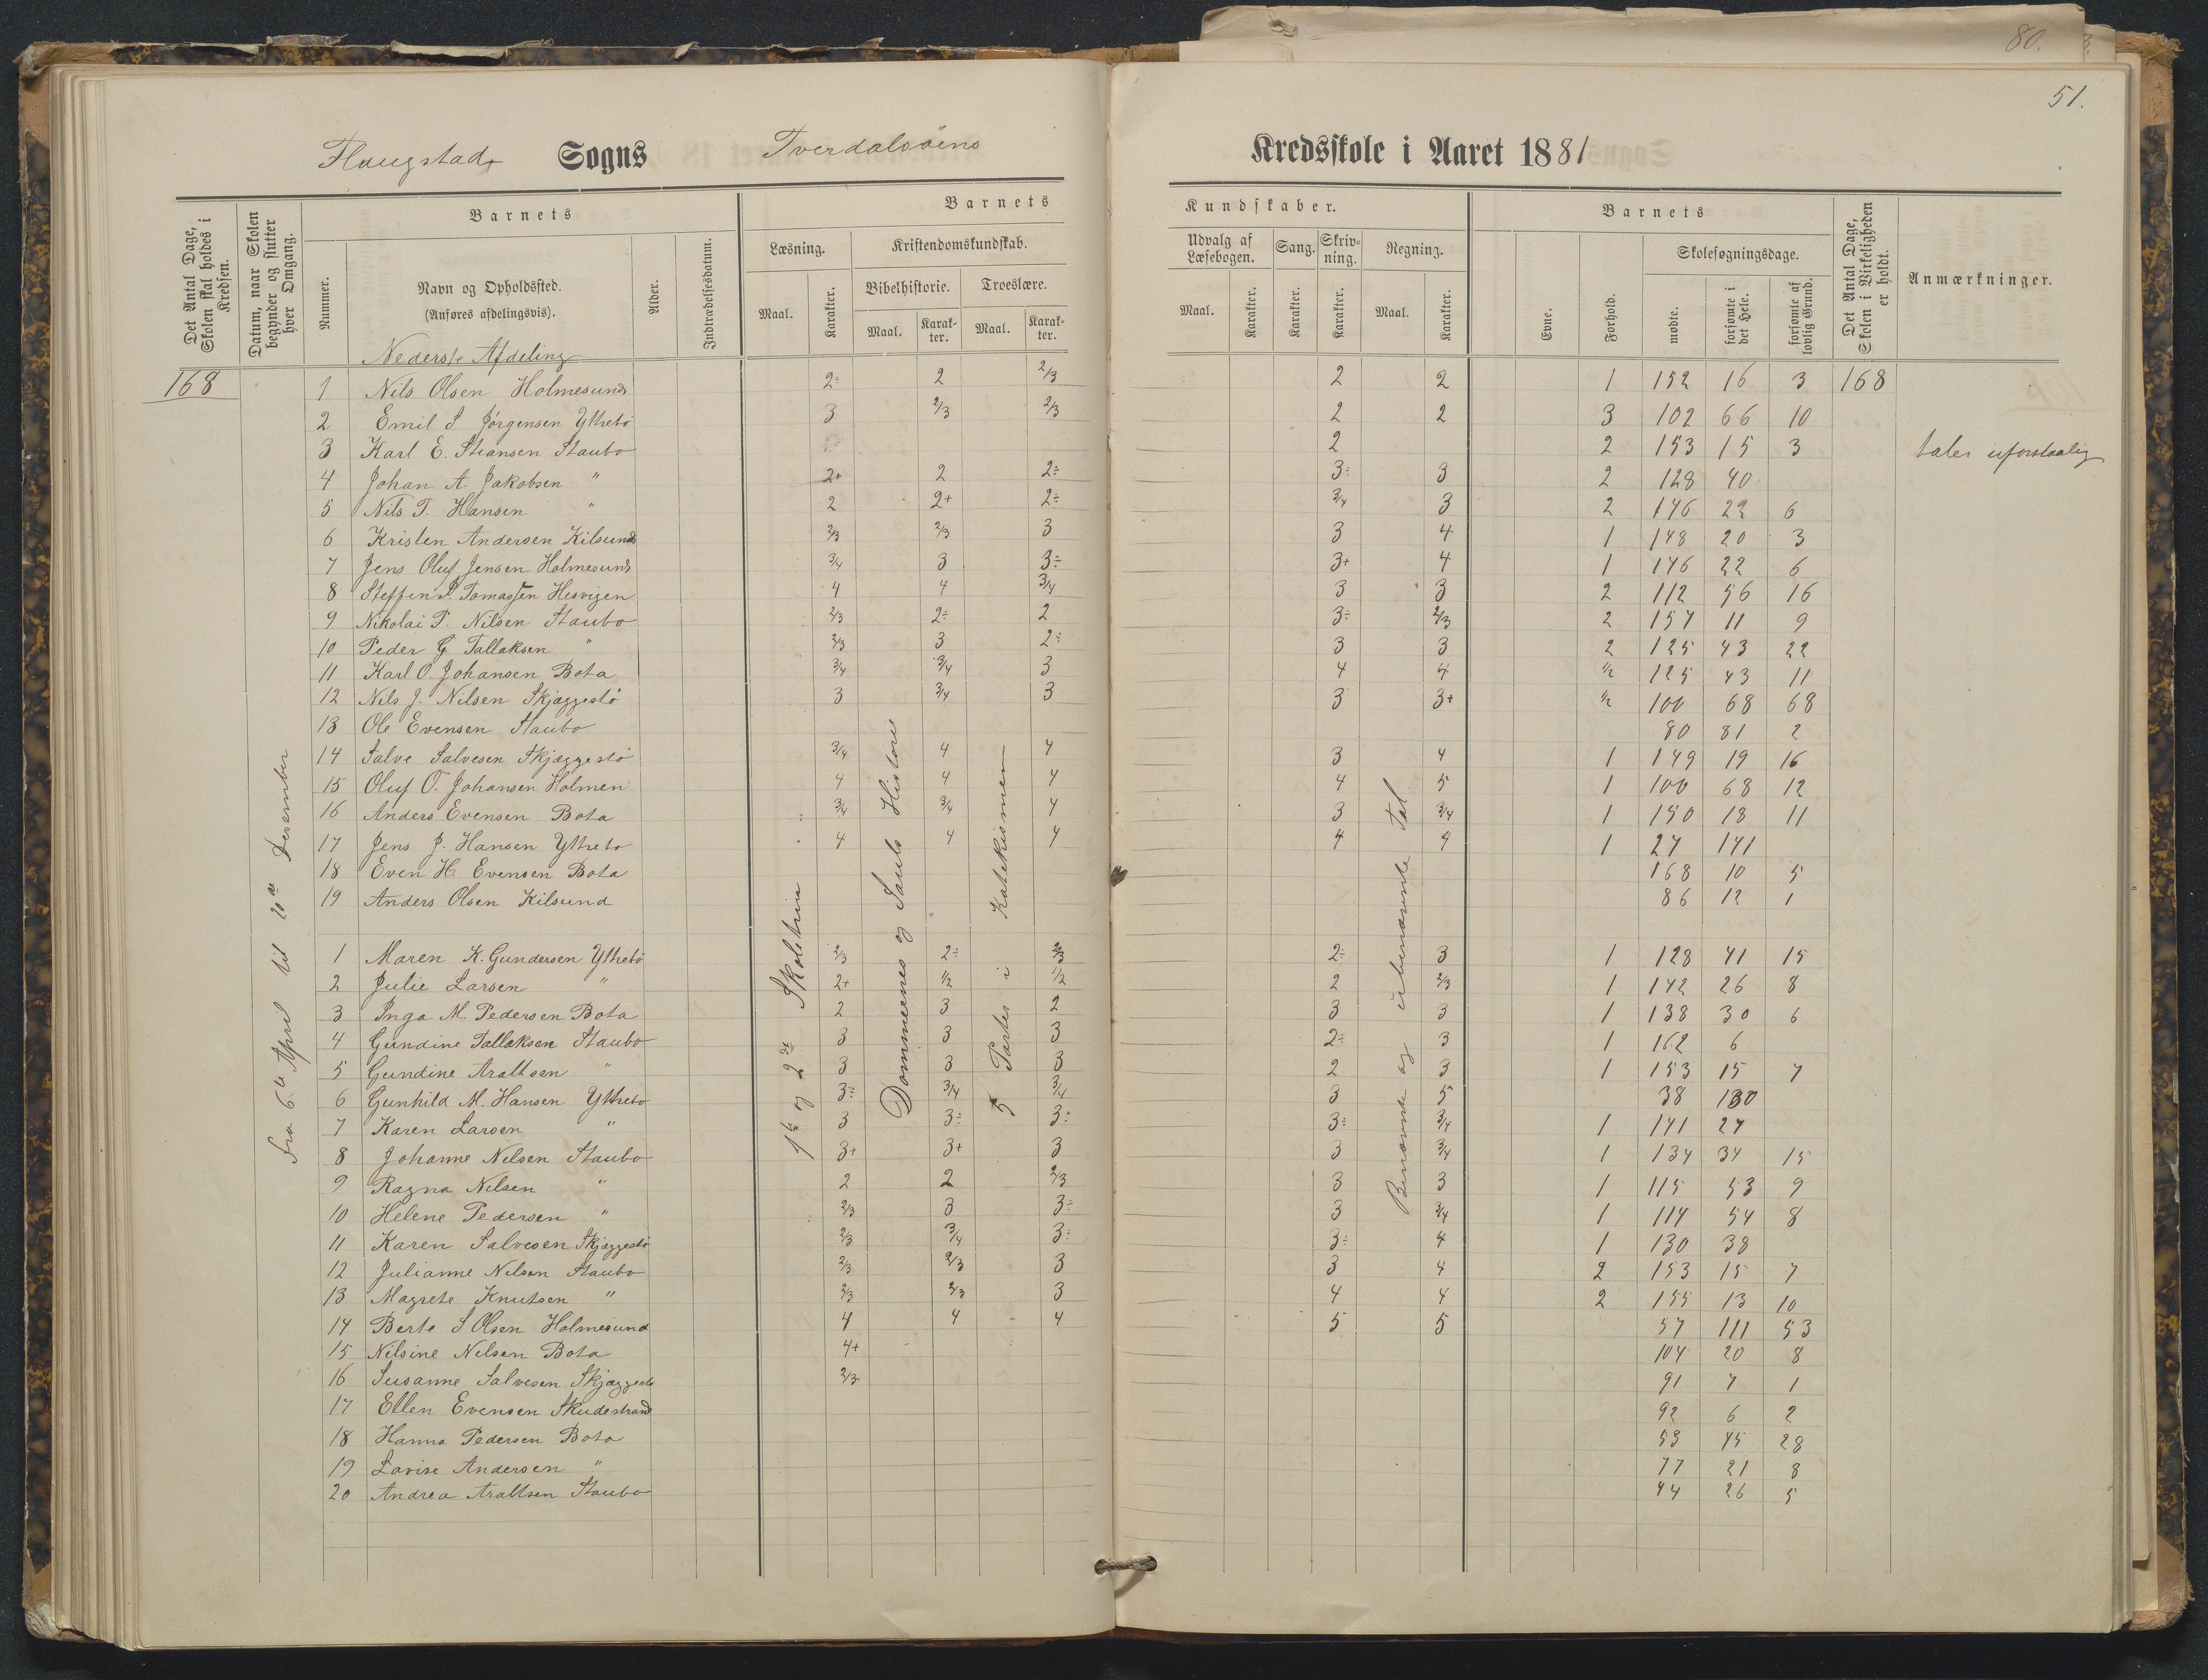 80.
51.
Flaugstads Sogns Tverdalsöens Kredsskole i Aaret 1881
Det Antal Dage, Skolen skal holdes i Kredsen.
Datum, naar Skolen begynder og slutter hver Omgang.
Barnets
Nummer.
Navn og Opholdssted.
(Anføres afdelingsvis).
Alder.
Indtrædelsesdatum.
Barnets
Læsning.
Maal.
Karakter.
Kristendomskundskab.
Bibelhistorie.
Maal.
Karakter.
Troeslære.
Maal.
Karakter.
Kundskaber.
Udvalg af Læsebogen.
Maal.
Karakter.
Sang.
Karakter.
Skrivning.
Karakter.
Regning.
Maal.
Karakter.
Barnets
Evne.
Forhold.
Skolesøgningsdage.
mødte.
forsømte i det Hele.
forsømte af lovlig Grund.
Det Antal Dage, Skolen i Virkeligheden er holdt.
Anmærkninger.
Nederste Afdeling
168 1 Nils Olsen Holmesund 2÷ 2 2/3 2 2 1 152 16 3 168
2 Emil S Jörgensen Yttrebö 3 2/3 2/3 2 2 3 102 66 10
3 Karl E. Stiansen Staubo 2 2 153 15 3 taler uforstaalig
4 Johan A. Jakobsen " 2+ 2 2÷ 3÷ 3 2 128 40
5 Nils T. Hansen " 2 2+ 2÷ 3/4 3 2 146 22 6
6 Kristen Andersen Kilsund 2/3 2/3 3 3 4 1 148 20 3
7 Jens Oluf Jensen Holmesund 3/4 3 3÷ 3+ 4 1 146 22 6
8 Steffen S. Tomassen Hesvigen 4 4 3/4 3 3 2 112 56 16
9 Nikolai P. Nilsen Staubo 2/3 2÷ 2 3÷ 2/3 2 157 11 9
10 Peder G. Tallaksen " 2/3 3 2÷ 3 3 2 125 43 22
11 Karl O. Johansen Bota 3/4 3/4 3 4 4 1/2 125 43 11
12 Nils J. Nilsen Skjæggestö 3 3/4 3 3 3+ 1/2 100 68 68
13 Ole Evensen Staubo 80 81 2
14 Salve Salvesen Skjæggestö 3/4 4 4 3 4 1 149 19 16
15 Oluf O. Johansen Holmen 4 4 4 4 5 1 100 68 12
16 Anders Evensen Bota 3/4 3/4 4 3 3/4 1 150 18 11
17 Jens J. Hansen Yttrebö 4 4 4 4 4 1 27 141
18 Even H. Evensen Bota 168 10 5
19 Anders Olsen Kilsund 86 12 1
1 Maren K. Gundersen Yttrebö 2/3 2÷ 2/3 2÷ 3 1 128 41 15
2 Julie Larsen " 2+ 1/2 1/2 2 2/3 1 142 26 8
3 Inga M. Pedersen Bota 2 3 2 3 3 1 138 30 6
4 Gundine Tallaksen Staubo 3 3 3 2÷ 3 1 162 6
5 Gundine Araltsen " 3 3 3 2 3 1 153 15 7
6 Gunhild M. Hansen Yttrebö 3÷ 3/4 3/4 3 5 38 130
7 Karen Larsen " 3 3÷ 3÷ 3÷ 3/4 1 141 27
8 Johanne Nilsen Staubo 3+ 3+ 3 3 3/4 1 134 34 15
9 Ragna Nilsen " 2 2 2/3 3 3 1 115 53 9
10 Helene Pedersen " 2/3 3 3÷ 3 3/4 1 114 54 8
11 Karen Salvesen Skjæggestö 2/3 3/4 3÷ 3÷ 4 1 130 38
12 Julianne Nilsen Staubo 2/3 2/3 3 3 4 2 153 15 7
13 Magrete Knutsen " 2/3 2/3 3 4 4 2 155 13 10
14 Berte S Olsen Holmesund 4 4 4 5 5 57 111 53
15 Nilsine Nilsen Bota 4+ 104 20 8
16 Susanne Salvesen Skjæggestö 2/3 91 7 1
17 Ellen Evensen Skudestrand 92 6 2
18 Hanna Pedersen Bota 53 45 28
19 Lovise Andersen " 77 21 8
20 Andrea Araltsen Staubo 44 26 5
Fra 6te April til 20de Desember
1te og 2de Skoletrin
Dommernes og Sauls Historie
5 Parter i Katekismen
Benævnte og ubenævnte Tal